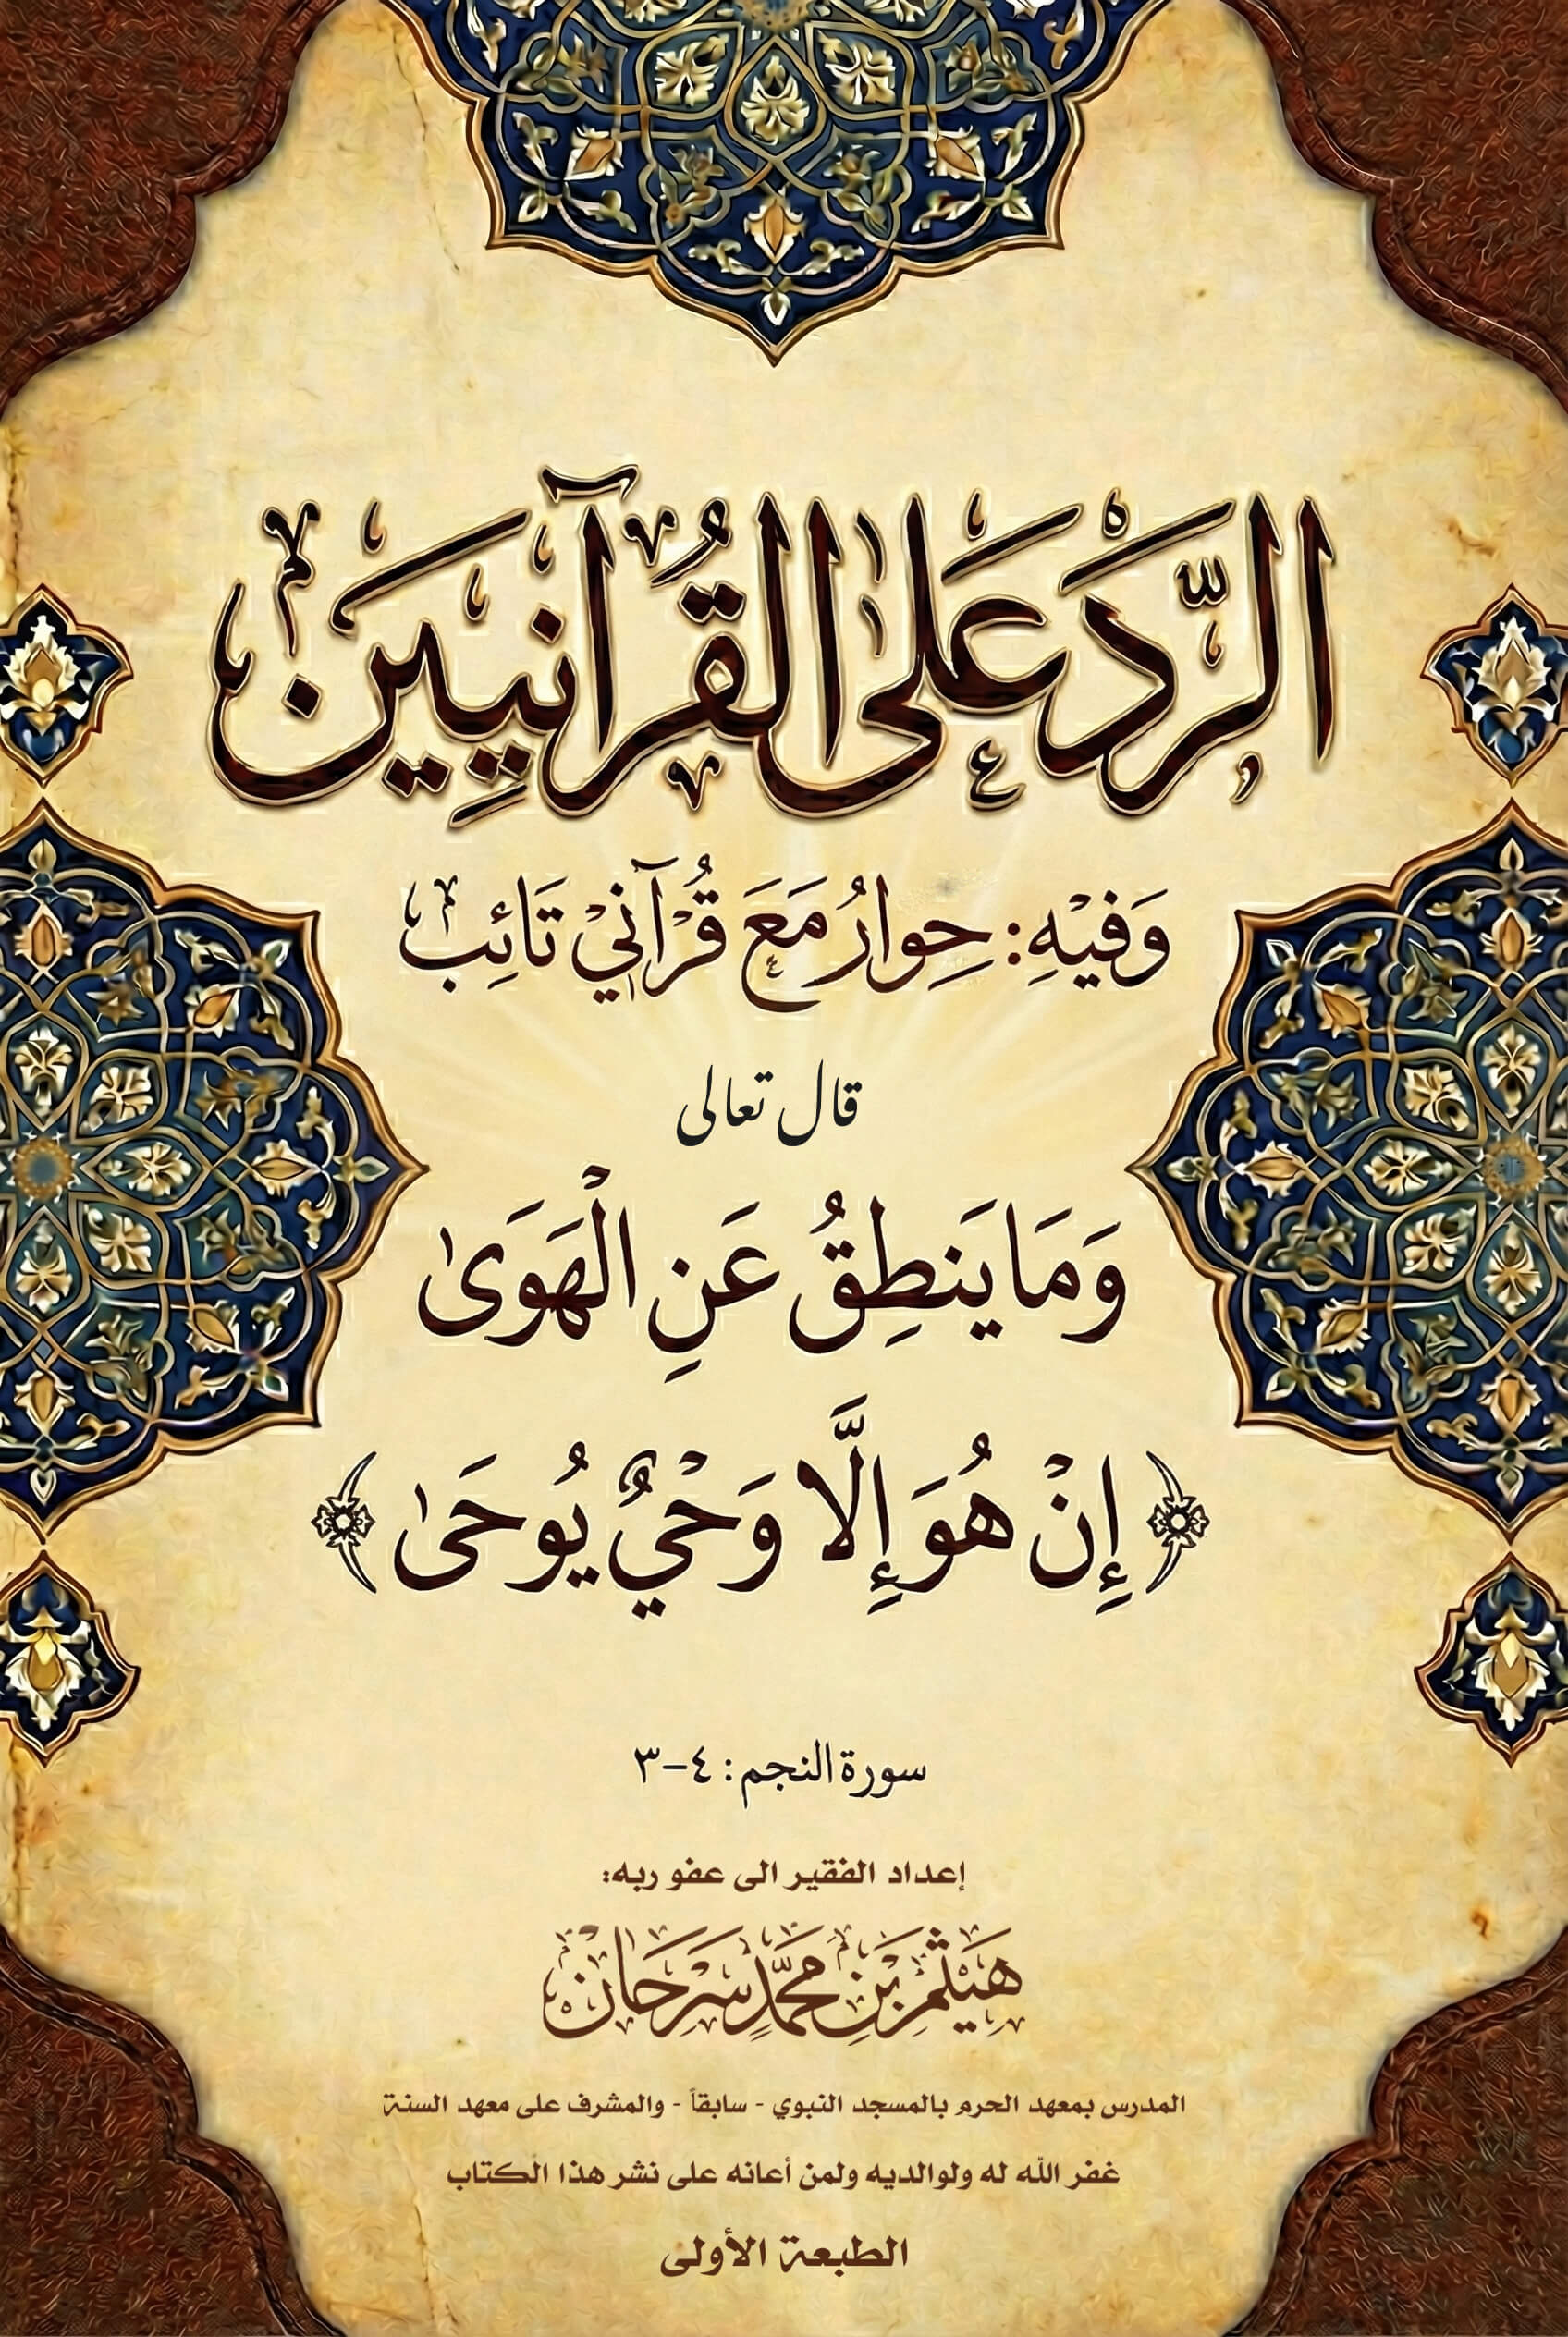 الرَّدُ عَلَى القُرآنِيِينَ
وَفِيْهِ: حِوارُ مَعَ قُرْآنيْ تَائِب
قال تعالى
وَمَا يَنطِقُ عَنِ الْهَوَىٰ
﴿إِنْ هُوَ إِلَّا وَحْيٌ يُوحَىٰ﴾
سورة النجم: ٤-٣
إعداد الفقير الى عفو ربه:
هَيْثَمْ بْنِ مُحَمَّدٍ سَرْحَانْ
المدرس بمعهد الحرم بالمسجد النبوي - سابقاً - والمشرف على معهد السنة
غفر الله له ولوالديه ولمن أعانه على نشر هذا الكتاب
الطبعة الأولى